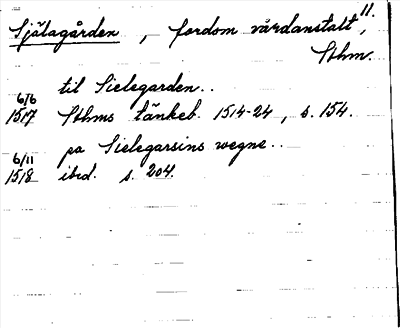 11.
Själagården , fordom vårdanstalt,
Sthm.
til Sielegarden..
6/6
1517 Sthms tänkeb. 1514-24, s. 154.
pa Sielegarsins wegne..
6/11
1518 ibid. s. 204.